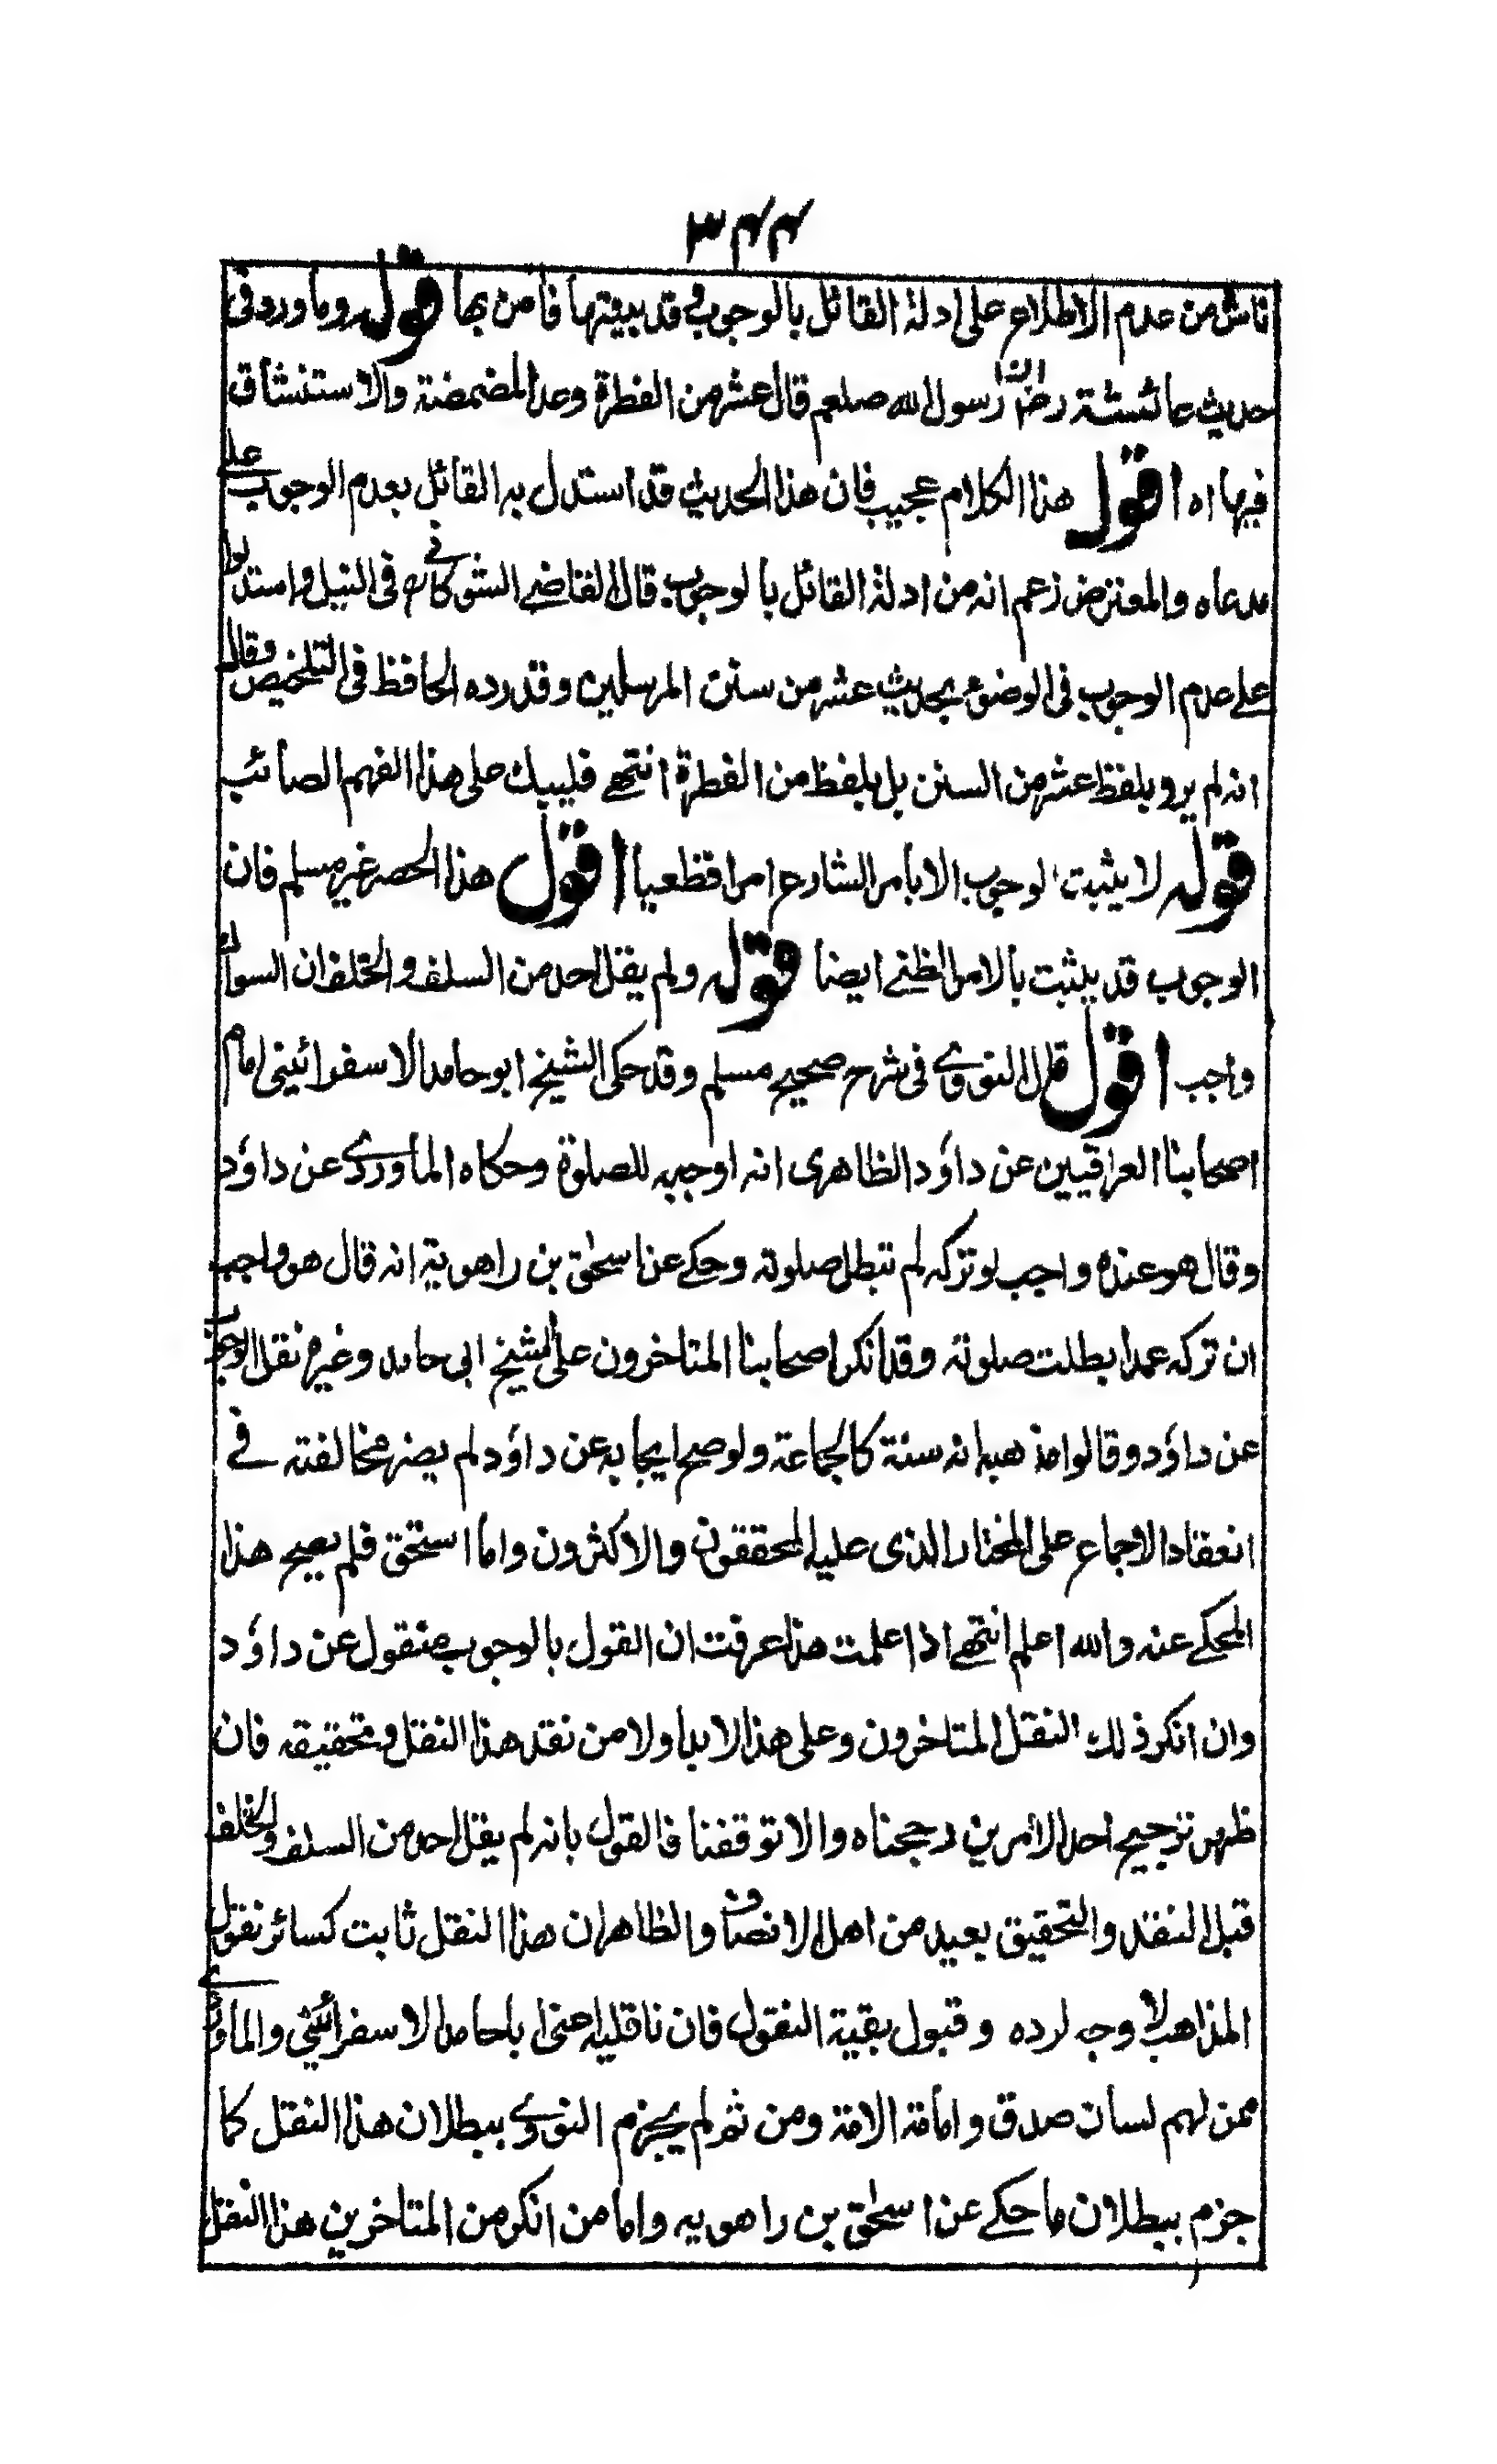 ٣٤٤
ناش من عدم الاطلاع على ادلة القائل بالوجوب وقد بينتها فامن بها قوله وما ورد فى
حديث عائشة رضى ان رسول الله صلعم قال عشر من الفطرة وعد المضمضة والاستنشاق
فيها اه اقول هذا الكلام عجيب فان هذا الحديث قد استدل به القائل بعدم الوجوب على
مدعاه والمعترض زعم انه من ادلة القائل بالوجوب قال القاضي الشوكاني فى النيل واستدلوا
على عدم الوجوب فى الوضوء بحديث عشر من سنن المرسلين وقد رده الحافظ فى التلخيص وقال
انه لم يرو بلفظ عشر من السنن بل بلفظ من الفطرة انتهى فليبك على هذا الفهم الصائب
قوله لا يثبت الوجوب الا بامر الشارع امرا قطعيا اقول هذا الحصر غير مسلم فان
الوجوب قد يثبت بالامر الظني ايضا قوله ولم يقل احد من السلف والخلف ان السواك
واجب اقول قال النووي فى شرح صحيح مسلم وقد حكى الشيخ ابو حامد الاسفرائينى امام
اصحابنا العراقيين عن داؤد الظاهرى انه اوجبه للصلوة وحكاه الماوردي عن داؤد
وقال هو عنده واجب لو تركه لم تبطل صلوته وحكي عن اسحٰق بن راهوية انه قال هو واجب
ان تركه عمدا بطلت صلوته وقد انكر اصحابنا المتاخرون على الشيخ ابى حامد وغيره نقل الوجوب
عن داؤد وقالوا مذهبه انه سنة كالجماعة ولو صح ايجابه عن داؤد لم يضر مخالفته في
انعقاد الاجماع على المختار الذى عليه المحققون والاكثرون واما اسحٰق فلم يصح هذا
المحكي عنه والله اعلم انتهى اذا علمت هذا عرفت ان القول بالوجوب منقول عن داؤد
وان انكر ذلك النقل المتاخرون وعلى هذا لا بد اولا من نقد هذا النقل وتحقيقه فان
ظهر ترجيح احد الامرين رجحناه والا توقفنا فالقول بانه لم يقل احد من السلف والخلف
قبل النقد والتحقيق بعيد من اهل الانصاف والظاهر ان هذا النقل ثابت كسائر نقول
المذاهب لا وجه لرده وقبول بقية النقول فان ناقليه اعنى ابا حامد الاسفرائينى والماوردي
ممن لهم لسان صدق وامامة الامة ومن ثم لم يجزم النووي ببطلان هذا النقل كما
جزم ببطلان ما حكي عن اسحٰق بن راهويه واما من انكر من المتاخرين هذا النقل